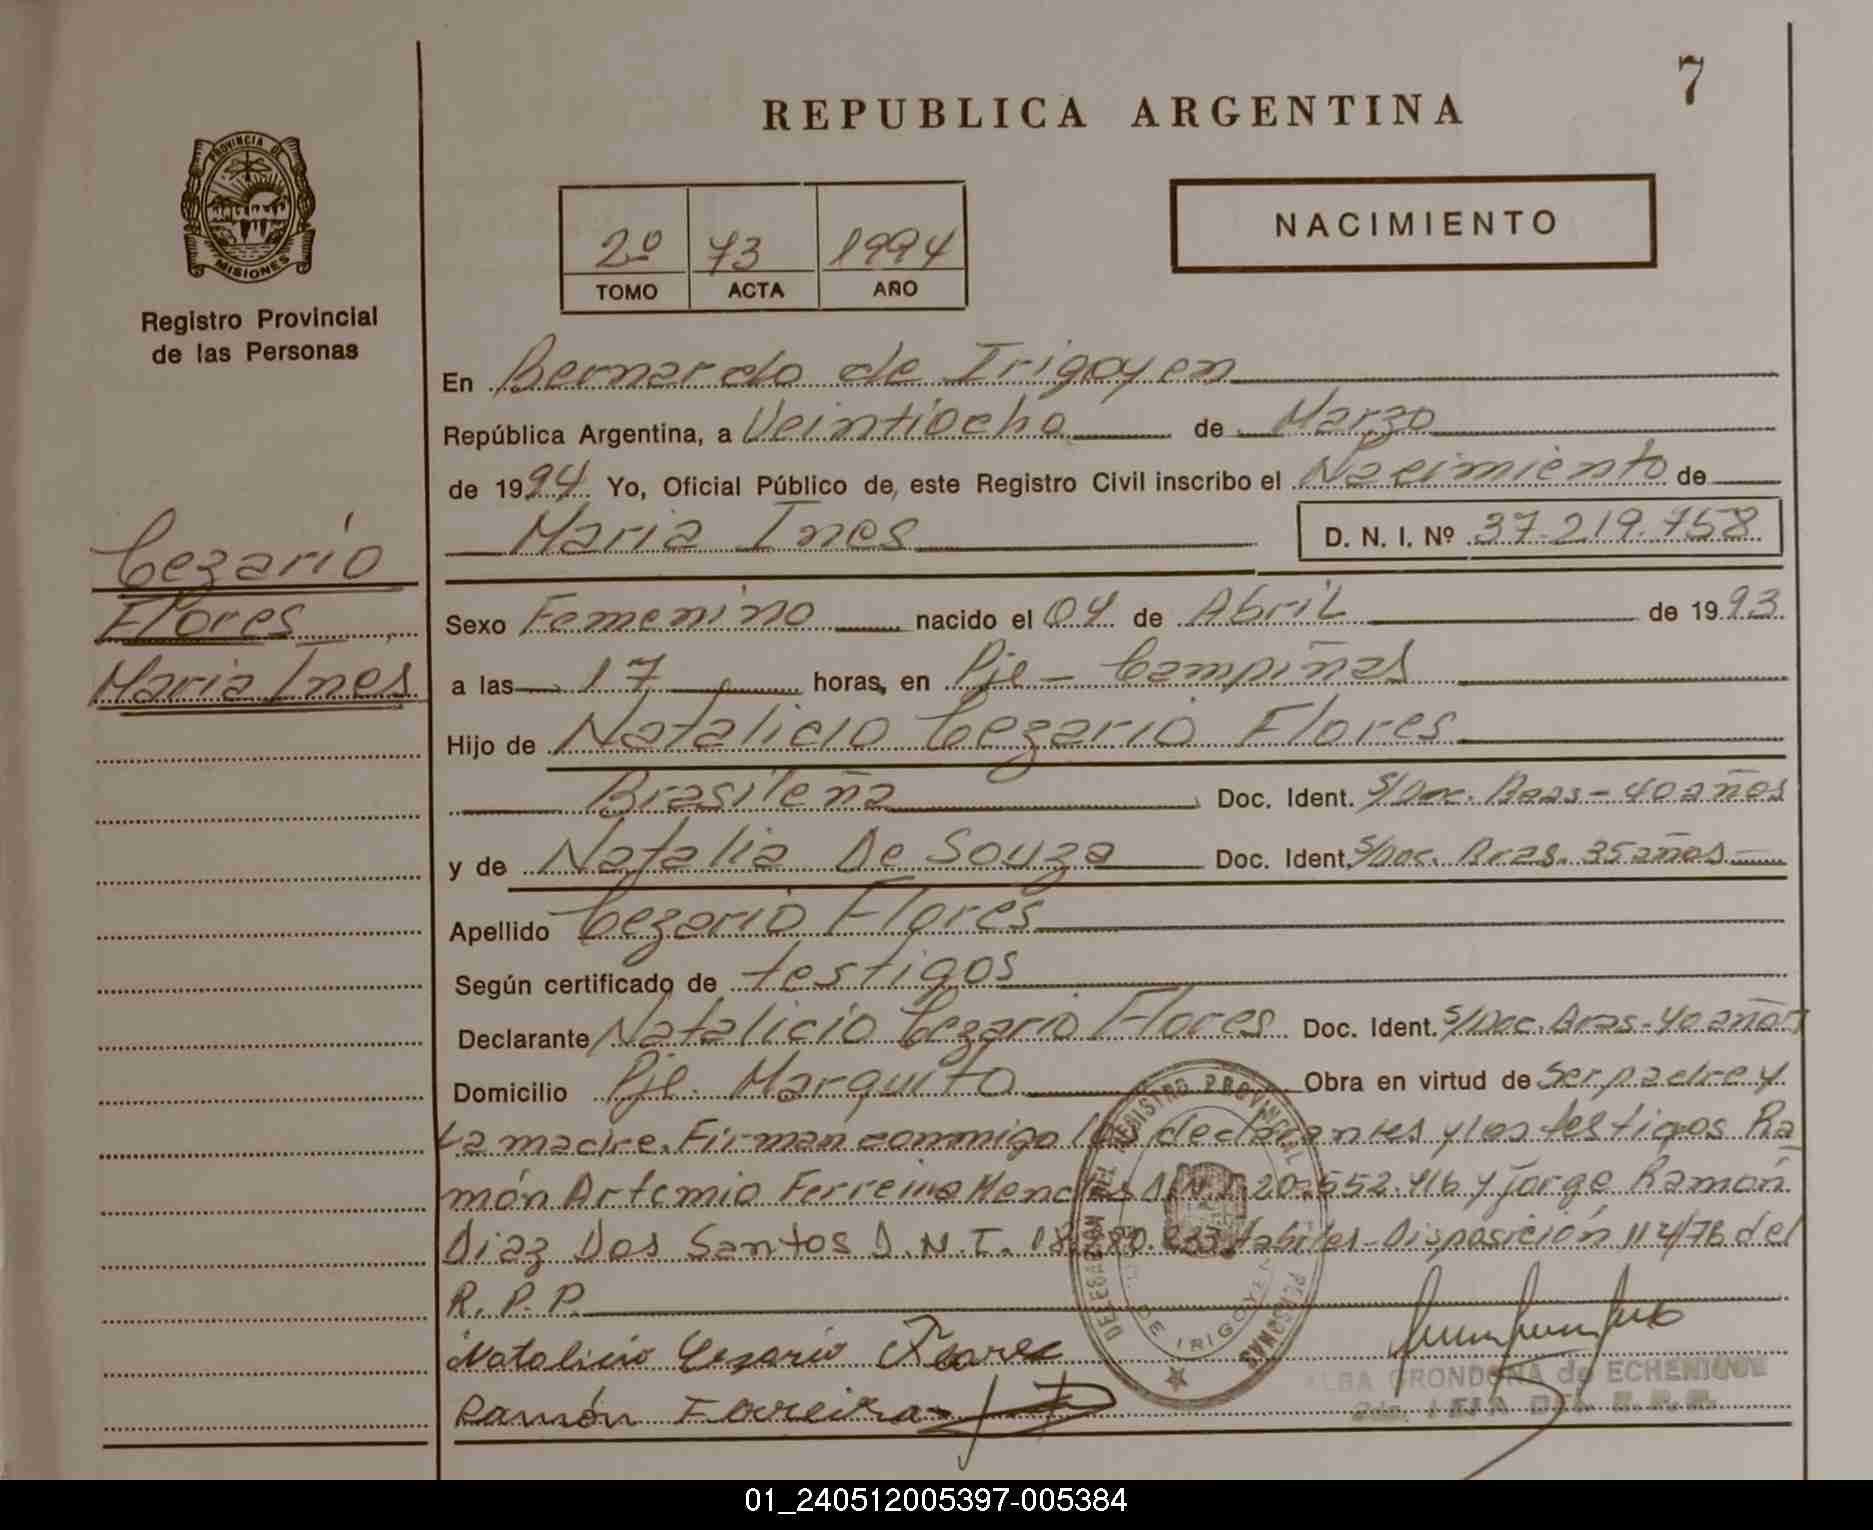 7
REPUBLICA ARGENTINA
PROVINCIA DE
MISIONES
Registro Provincial
de las Personas
NACIMIENTO
2º 73 1994
TOMO ACTA AÑO
En Bernardo de Irigoyen
República Argentina, a Veintiocho de Marzo
de 1994 Yo, Oficial Público de, este Registro Civil inscribo el Nacimiento de
Maria Ines D. N. I. Nº 37.219.758
Cezario
Flores
Maria Ines
Sexo Femenino nacido el 04 de Abril de 1993
a las 17 horas, en Pje - Campiñas
Hijo de Natalicio Cezario Flores
Brasileña Doc. Ident. S/Doc. Bras - 40 años
y de Natalia De Souza Doc. Ident. S/Doc. Bras. 35 años
Apellido Cezario Flores
Según certificado de testigos
Declarante Natalicio Cezario Flores Doc. Ident. S/Doc. Bras - 40 años
Domicilio Pje. Marquito Obra en virtud de Ser padre y
La madre. Firman conmigo los declarantes y los testigos Ra-
món Artemio Ferreira D.N.I. 20.552.416 y Jorge Ramón
Diaz Dos Santos D.N.I. habiles - Disposición 114/78 del
R.P.P.
Natalicio Cezario Floares
Ramón Ferreira
DELEGACION DEL REGISTRO PROVINCIAL PERSONAS
DE IRIGOYEN
ALBA GRONDONA de ECHENIQUE
01_240512005397-005384